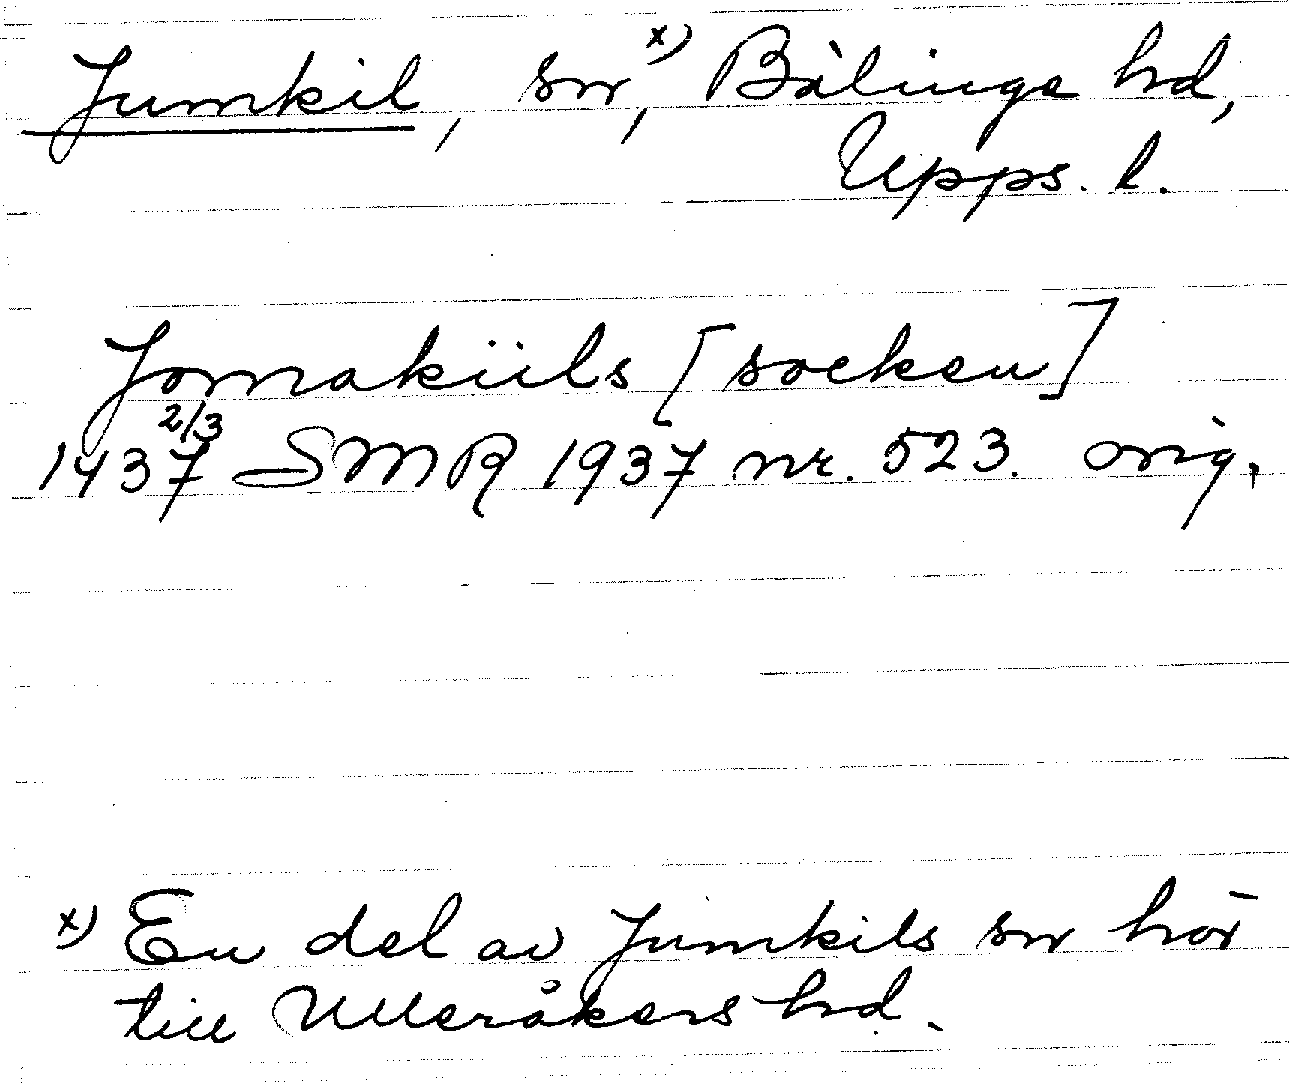 Jumkil, sn,x) Bälinge hd,
Upps. l.
Jomakiils [socken]
1437 2/3 SMR 1937 nr. 523. orig.
x) En del av Jumkils sn hör
till Ulleråkers hd.